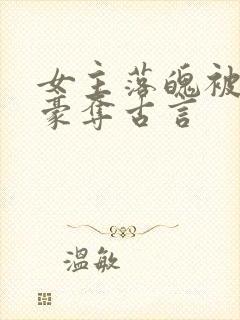 女主落魄被
豪夺古言
温敏